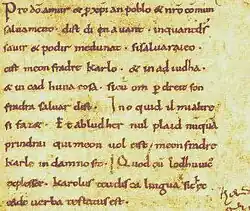 Pro dō amur & p xp̄ian poblo & nr̄o cōmun
saluament. dist di en auant. inquantdˢ
sauir & podir medunat. sisaluaraieo
cist meon fradre karlo. & in aiudha
& in cad huna cosa. sicū om p dreit son
fradra saluar dist. Ino quid il mialtre
si fazet. Et ab ludher nul plaid nūquā
prindrai qui meon uol cist meon fradre
karle in damno sit. Quod cū lodhuuic
explesset. karolus teudisca lingua sic
eadē uerba testatus est.